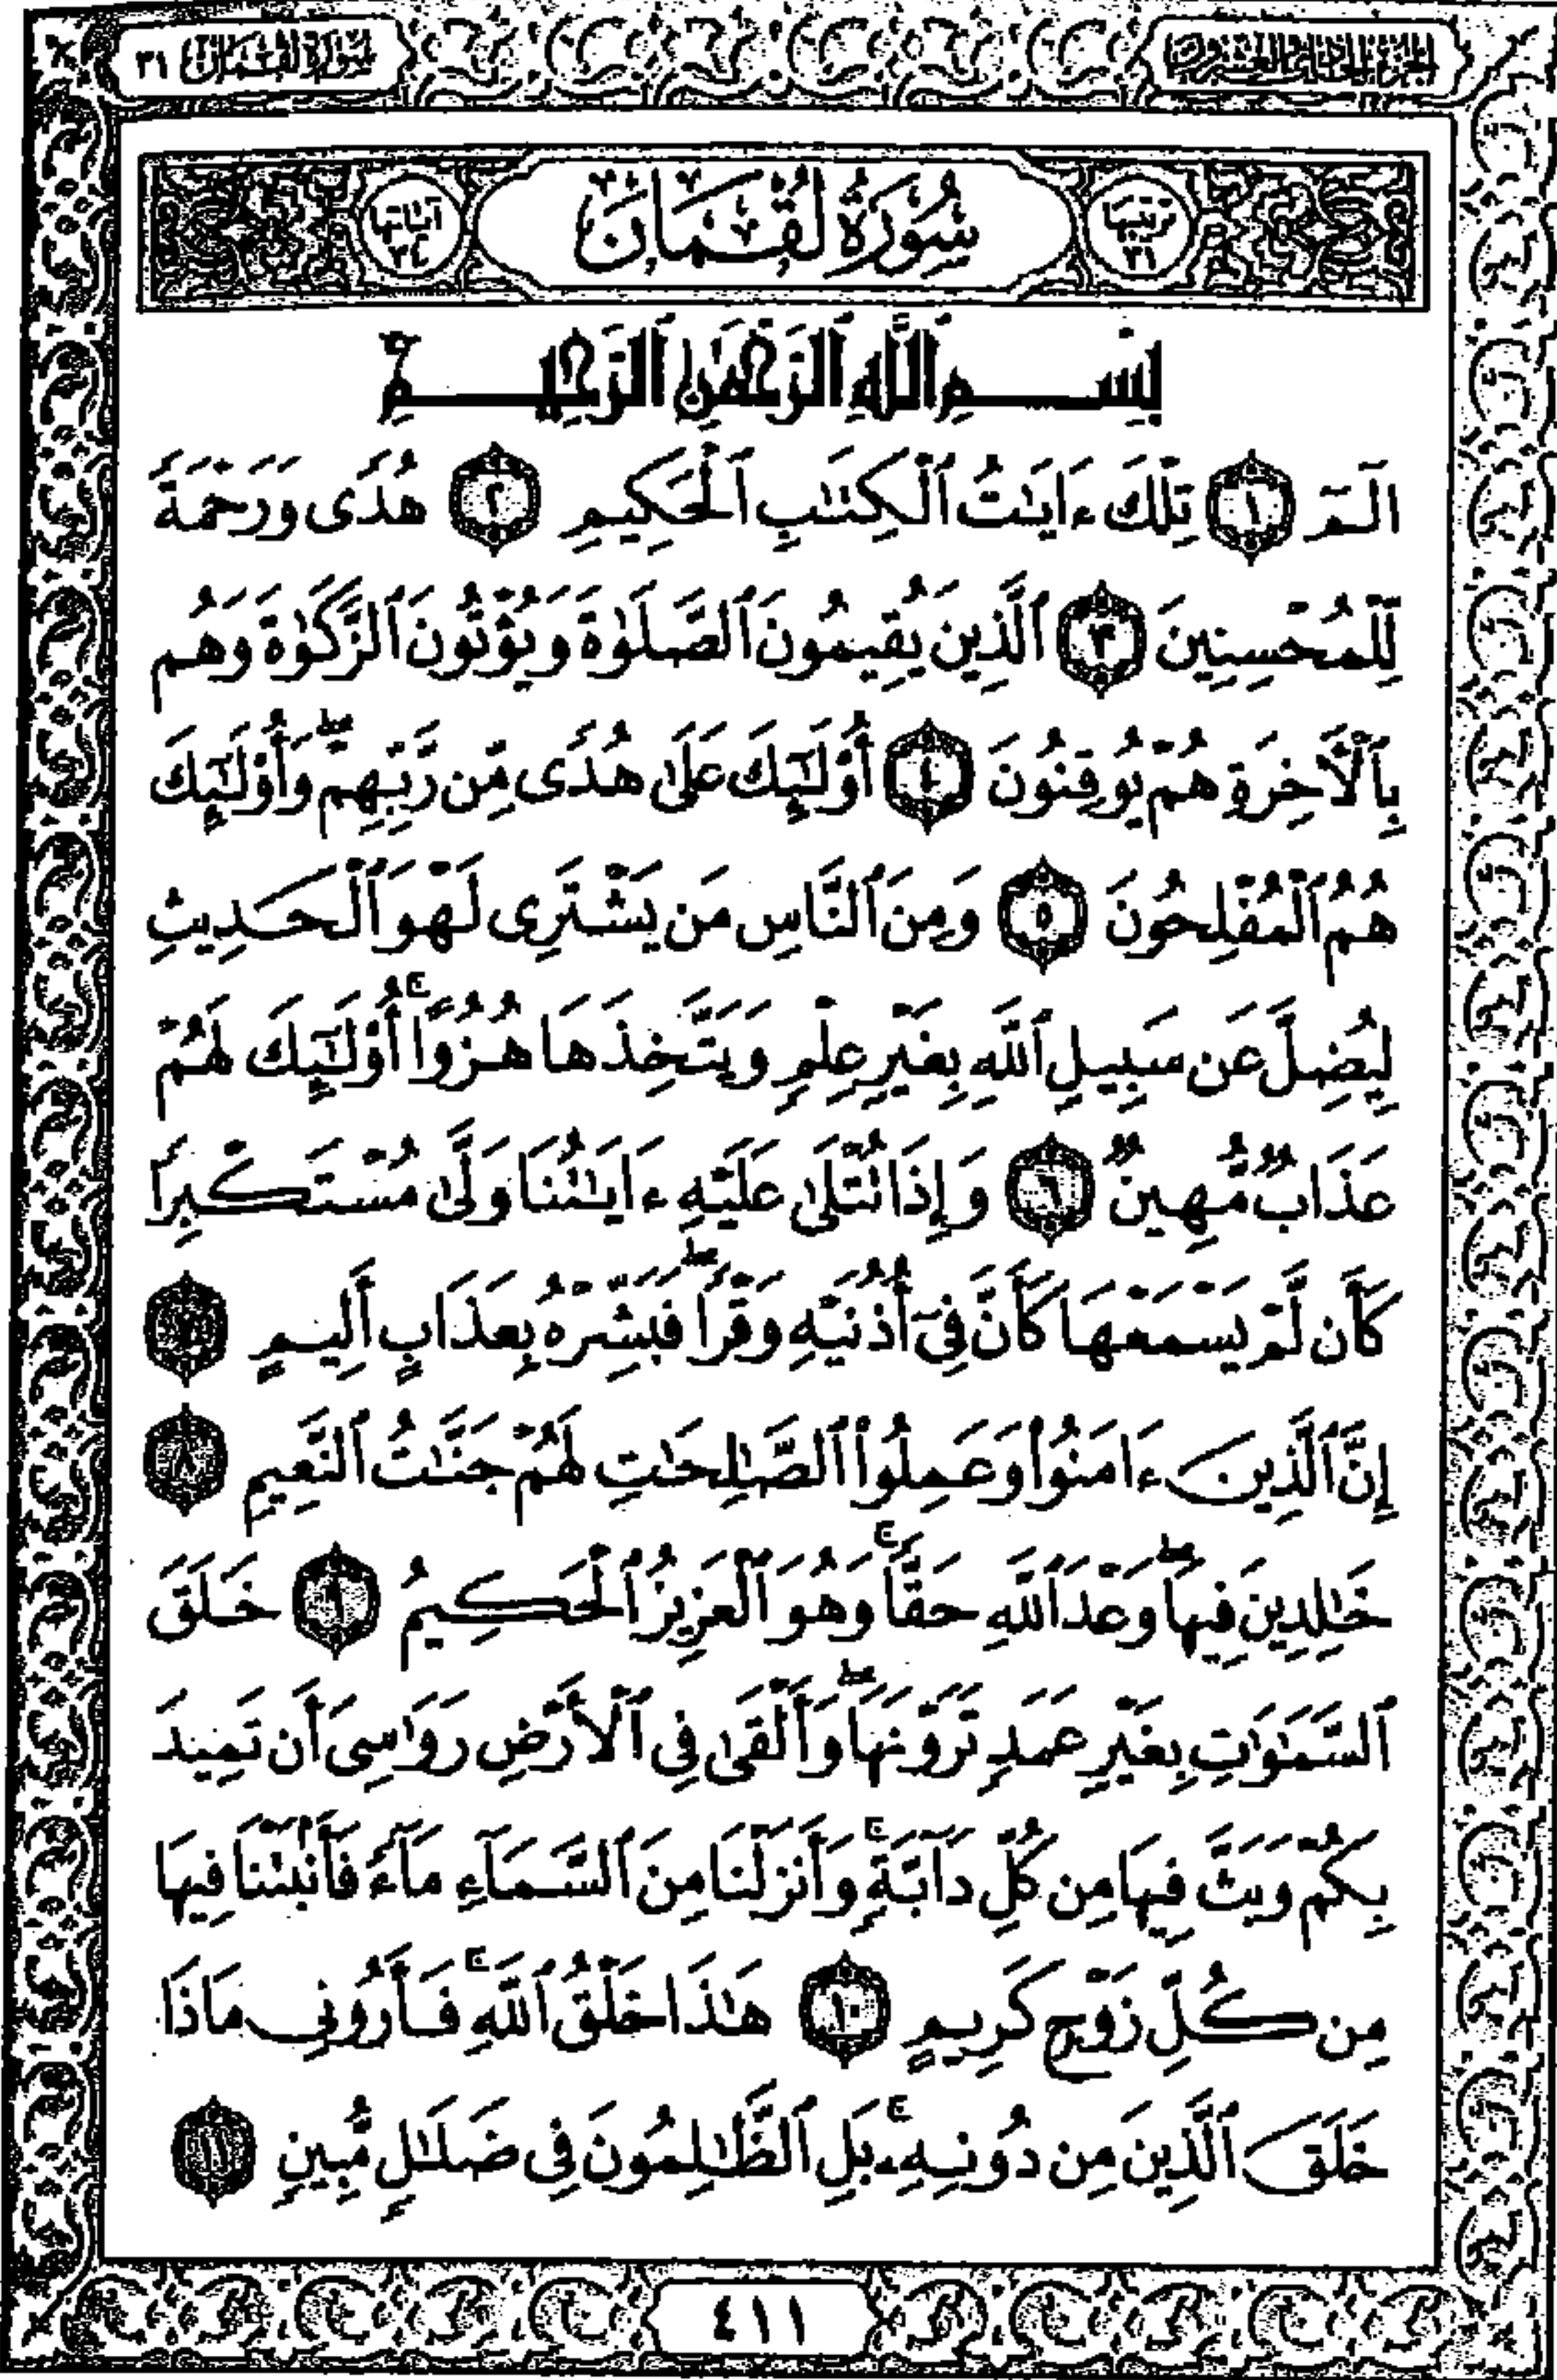 الجزء الحادي والعشرون
سورة لقمان ٣١
ترتيبها ٣١ سُورَةُ لُقْمَانَ آياتها ٣٤
بِسْمِ ٱللَّهِ ٱلرَّحْمَٰنِ ٱلرَّحِيمِ
الٓمٓ ١ تِلْكَ ءَايَٰتُ ٱلْكِتَٰبِ ٱلْحَكِيمِ ٢ هُدًى وَرَحْمَةً
لِّلْمُحْسِنِينَ ٣ ٱلَّذِينَ يُقِيمُونَ ٱلصَّلَوٰةَ وَيُؤْتُونَ ٱلزَّكَوٰةَ وَهُم
بِٱلْأَخِرَةِ هُمْ يُوقِنُونَ ٤ أُو۟لَٰٓئِكَ عَلَىٰ هُدًى مِّن رَّبِّهِمْ ۖ وَأُو۟لَٰٓئِكَ
هُمُ ٱلْمُفْلِحُونَ ٥ وَمِنَ ٱلنَّاسِ مَن يَشْتَرِى لَهْوَ ٱلْحَدِيثِ
لِيُضِلَّ عَن سَبِيلِ ٱللَّهِ بِغَيْرِ عِلْمٍ وَيَتَّخِذَهَا هُزُوًا ۚ أُو۟لَٰٓئِكَ لَهُمْ
عَذَابٌ مُّهِينٌ ٦ وَإِذَا تُتْلَىٰ عَلَيْهِ ءَايَٰتُنَا وَلَّىٰ مُسْتَكْبِرًا
كَأَن لَّمْ يَسْمَعْهَا كَأَنَّ فِىٓ أُذُنَيْهِ وَقْرًا ۖ فَبَشِّرْهُ بِعَذَابٍ أَلِيمٍ ٧
إِنَّ ٱلَّذِينَ ءَامَنُوا۟ وَعَمِلُوا۟ ٱلصَّٰلِحَٰتِ لَهُمْ جَنَّٰتُ ٱلنَّعِيمِ ٨
خَٰلِدِينَ فِيهَا ۖ وَعْدَ ٱللَّهِ حَقًّا ۚ وَهُوَ ٱلْعَزِيزُ ٱلْحَكِيمُ ٩ خَلَقَ
ٱلسَّمَٰوَٰتِ بِغَيْرِ عَمَدٍ تَرَوْنَهَا ۖ وَأَلْقَىٰ فِى ٱلْأَرْضِ رَوَٰسِىَ أَن تَمِيدَ
بِكُمْ وَبَثَّ فِيهَا مِن كُلِّ دَآبَّةٍ ۚ وَأَنزَلْنَا مِنَ ٱلسَّمَآءِ مَآءً فَأَنۢبَتْنَا فِيهَا
مِن كُلِّ زَوْجٍ كَرِيمٍ ١٠ هَٰذَا خَلْقُ ٱللَّهِ ۚ فَأَرُونِى مَاذَا
خَلَقَ ٱلَّذِينَ مِن دُونِهِۦ ۚ بَلِ ٱلظَّٰلِمُونَ فِى ضَلَٰلٍ مُّبِينٍ ١١
٤١١